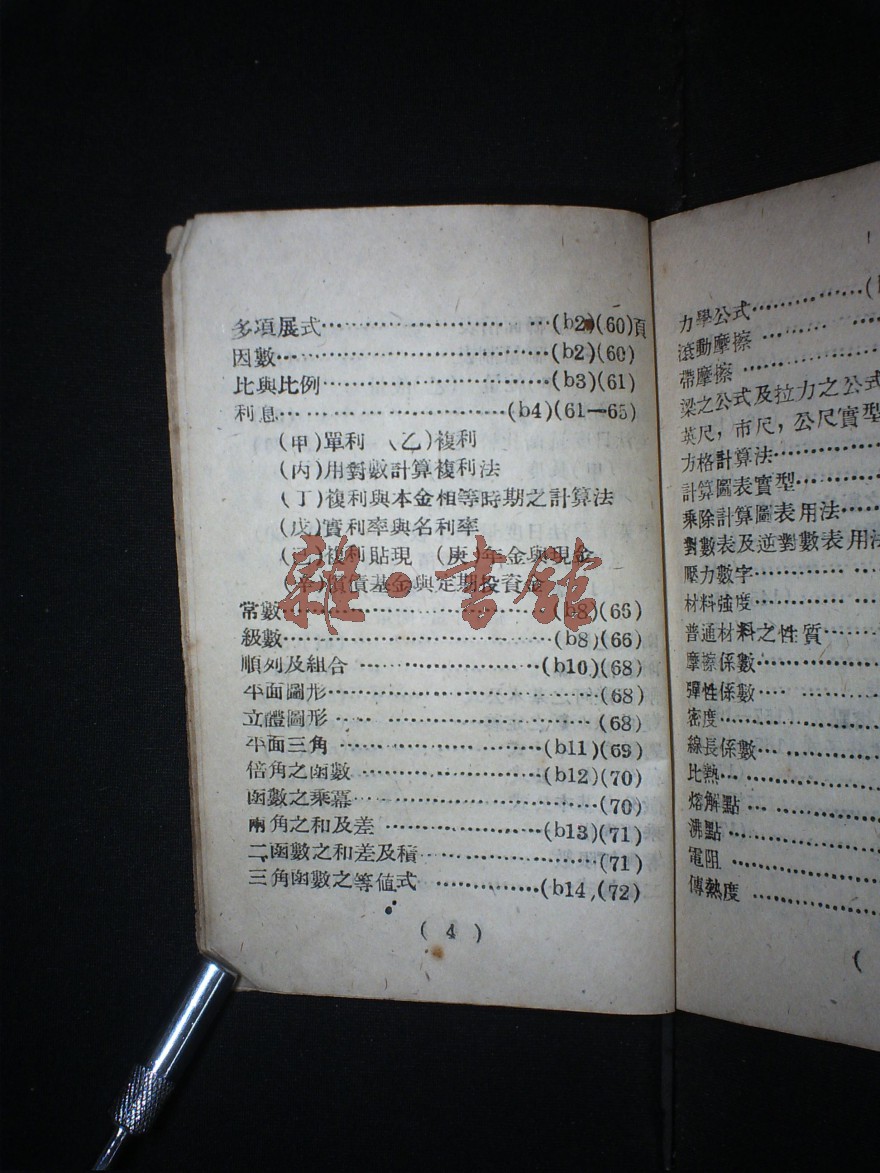 多項展式……………………(b2)(60)頁
因數……………………(b2)(60)
比與比例……………………(b3)(61)
利息……………………(b4)(61—65)
(甲)單利 (乙)複利
(丙)用對數計算複利法
(丁)複利與本金相等時期之計算法
(戊)實利率與名利率
(己)複利貼現 (庚)年金與現金
(辛)償債基金與定期投資金
常數……………………(b8)(66)
級數……………………(b8)(66)
順列及組合……………………(b10)(68)
平面圖形……………………(68)
立體圖形……………………(68)
平面三角……………………(b11)(69)
倍角之函數……………………(b12)(70)
函數之乘冪……………………(70)
兩角之和及差……………………(b13)(71)
二函數之和差及積……………………(71)
三角函數之等值式……………………(b14,(72)
(4)
雜·書館
力學公式……………(b
滾動摩擦……………
帶摩擦……………
梁之公式及拉力之公式
英尺,市尺,公尺實型
方格計算法……………
計算圖表實型……………
乘除計算圖表用法……
對數表及逆對數表用法
壓力數字……………
材料強度……………
普通材料之性質……
摩擦係數……………
彈性係數……………
密度……………
線長係數……………
比熱……………
熔解點……………
沸點……………
電阻……………
傳熱度……………
(